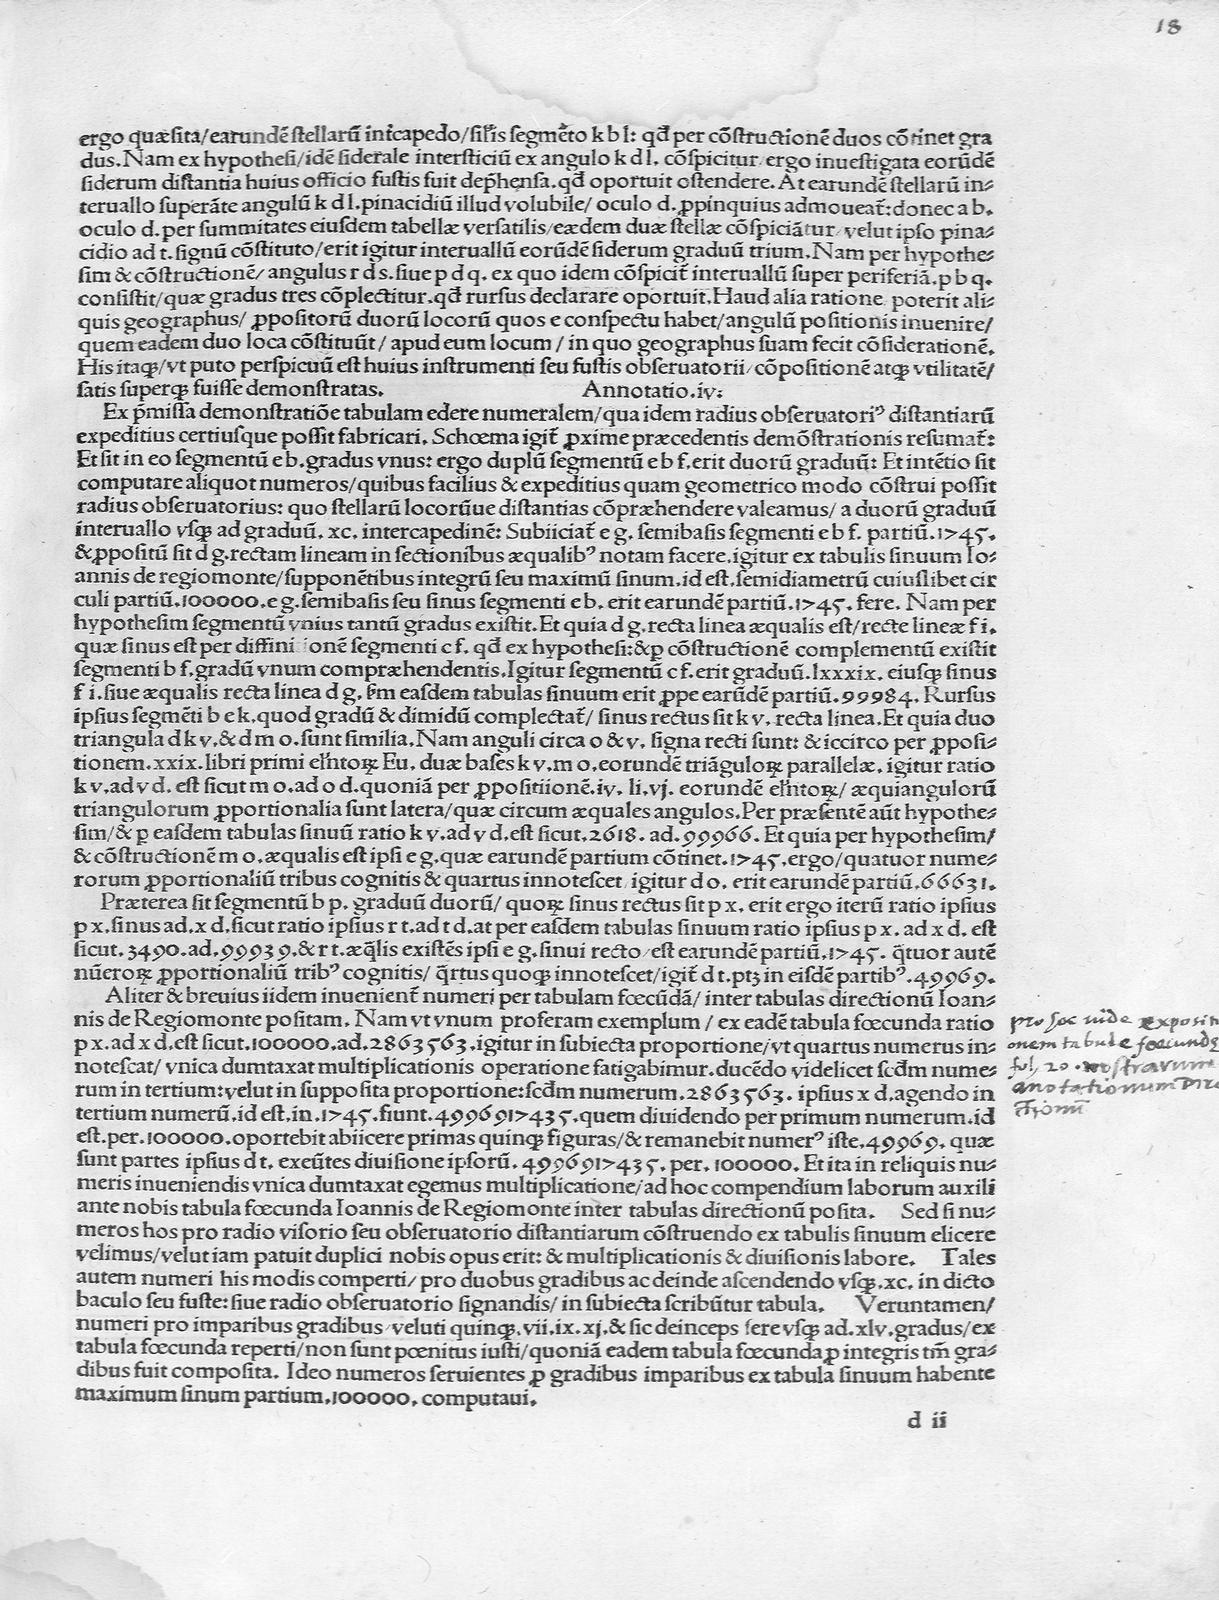 18
ergo quæsita/earundē stellarū int̄capedo/sil̄is segmēto k b l: qđ per cōstructionē duos cōtinet gra
dus. Nam ex hypothesi/idē siderale intersticiū ex angulo k d l. cōspicitur ergo inuestigata eorūdē
siderum distantia huius officio fustis fuit dep̄hensa. qđ oportuit ostendere. At earundē stellarū in⸗
teruallo superāte angulū k d l. pinacidiū illud volubile/ oculo d. ꝓpinquius admoueat̄: donec a b.
oculo d. per summitates eiusdem tabellæ versatilis/eædem duæ stellæ cōspiciātur/velut ipso pina⸗
cidio ad t. signū cōstituto/erit igitur interuallū eorūdē siderum graduū trium. Nam per hypothe⸗
sim & cōstructionē/ angulus r d s. siue p d q. ex quo idem cōspicit̄ interuallū super periferiā. p b q.
consistit/quæ gradus tres cōplectitur. qđ rursus declarare oportuit. Haud alia ratione poterit ali⸗
quis geographus/ ꝓpositorū duorū locorū quos e conspectu habet/angulū positionis inuenire/
quem eadem duo loca cōstituūt/ apud eum locum/ in quo geographus suam fecit cōsiderationē.
His itaqꝫ/vt puto perspicuū est huius instrumenti seu fustis obseruatorii/cōpositionē atqꝫ vtilitatē/
satis superqꝫ fuisse demonstratas. Annotatio. iv:
Ex p̄missa demonstratiōe tabulam edere numeralem/qua idem radius obseruatoriꝰ distantiarū
expeditius certiusque possit fabricari. Schœma igit̄ ꝓxime præcedentis demōstrationis resumat̄:
Et sit in eo segmentū e b. gradus vnus: ergo duplū segmentū e b f. erit duorū graduū: Et intētio sit
computare aliquot numeros/quibus facilius & expeditius quam geometrico modo cōstrui possit
radius obseruatorius: quo stellarū locorūue distantias cōpræhendere valeamus/ a duorū graduū
interuallo vsqꝫ ad graduū. xc. intercapedinē: Subiiciat̄ e g. semibasis segmenti e b f. partiū. 1745.
& ꝓpositū sit d g. rectam lineam in sectionibus æqualibꝰ notam facere. igitur ex tabulis sinuum Io⸗
annis de regiomonte/supponētibus integrū seu maximū sinum. id est. semidiametrū cuiuslibet cir
culi partiū. 100000. e g. semibasis seu sinus segmenti e b. erit earundē partiū. 1745. fere. Nam per
hypothesim segmentū vnius tantū gradus existit. Et quia d g. recta linea æqualis est/recte lineæ f i.
quæ sinus est per diffini ionē segmenti c f. qđ ex hypothesi: & ꝑ cōstructionē complementū existit
segmenti b f. gradū vnum compræhendentis. Igitur segmentū c f. erit graduū. lxxxix. eiusqꝫ sinus
f i. siue æqualis recta linea d g. s̄m easdem tabulas sinuum erit ꝓpe earūdē partiū. 99984. Rursus
ipsius segmēti b e k. quod gradū & dimidū complectat̄/ sinus rectus sit k v. recta linea. Et quia duo
triangula d k v. & d m o. sunt similia. Nam anguli circa o & v. signa recti sunt: & iccirco per ꝓposi⸗
tionem. xxix. libri primi eln̄toꝝ Eu. duæ bases k v. m o. eorundē triāguloꝝ parallelæ. igitur ratio
k v. ad v d. est sicut m o. ad o d. quoniā per ꝓpositiionē. iv. li. vj. eorundē eln̄toꝝ/ æquiangulorū
triangulorum ꝓportionalia sunt latera/quæ circum æquales angulos. Per præsentē aūt hypothe⸗
sim/& ꝑ easdem tabulas sinuū ratio k v. ad v d. est sicut. 2618. ad. 99966. Et quia per hypothesim/
& cōstructionē m o. æqualis est ipsi e g. quæ earundē partium cōtinet. 1745. ergo/quatuor nume⸗
rorum ꝓportionaliū tribus cognitis & quartus innotescet/igitur d o. erit earundē partiū. 66631.
Præterea sit segmentū b p. graduū duorū/ quoꝝ sinus rectus sit p x. erit ergo iterū ratio ipsius
p x. sinus ad. x d. sicut ratio ipsius r t. ad t d. at per easdem tabulas sinuum ratio ipsius p x. ad x d. est
sicut. 3490. ad. 99939. & r t. æq̄lis existēs ipsi e g. sinui recto/est earundē partiū. 1745. q̄tuor autē
nūeroꝝ ꝓportionaliū tribꝰ cognitis/ q̄rtus quoqꝫ innotescet/igit̄ d t. ptꝫ in eisdē partibꝰ. 49969.
Aliter & breuius iidem inuenient̄ numeri per tabulam fœcūdā/ inter tabulas directionū Ioan⸗
nis de Regiomonte positam. Nam vt vnum proferam exemplum/ ex eadē tabula fœcunda ratio
p x. ad x d. est sicut. 100000. ad. 2863563. igitur in subiecta proportione/vt quartus numerus in⸗
notescat/ vnica dumtaxat multiplicationis operatione fatigabimur. ducēdo videlicet scđm nume⸗
rum in tertium: velut in supposita proportione: scđm numerum. 2863563. ipsius x d. agendo in
tertium numerū. id est. in. 1745. fiunt. 4996917435. quem diuidendo per primum numerum. id
est. per. 100000. oportebit abiicere primas quinqꝫ figuras/& remanebit numerꝰ iste. 49969. quæ
sunt partes ipsius d t. exeūtes diuisione ipsorū. 4996917435. per. 100000. Et ita in reliquis nu⸗
meris inueniendis vnica dumtaxat egemus multiplicatione/ad hoc compendium laborum auxili
ante nobis tabula fœcunda Ioannis de Regiomonte inter tabulas directionū posita. Sed si nu⸗
meros hos pro radio visorio seu obseruatorio distantiarum cōstruendo ex tabulis sinuum elicere
velimus/velut iam patuit duplici nobis opus erit: & multiplicationis & diuisionis labore. Tales
autem numeri his modis comperti/ pro duobus gradibus ac deinde ascendendo vsqꝫ. xc. in dicto
baculo seu fuste: siue radio obseruatorio signandis/ in subiecta scribūtur tabula. Veruntamen/
numeri pro imparibus gradibus/veluti quinqꝫ. vii. ix. xj. & sic deinceps fere vsqꝫ ad. xlv. gradus/ex
tabula fœcunda reperti/non sunt pœnitus iusti/quoniā eadem tabula fœcunda ꝑ integris tm̄ gra⸗
dibus fuit composita. Ideo numeros seruientes ꝓ gradibus imparibus ex tabula sinuum habente
maximum sinum partium. 100000. computaui.
d ii
pro hoc vide exposit
onem tabule foecunde
fol. 20. nostrarum
anotationum Dire
ctionū